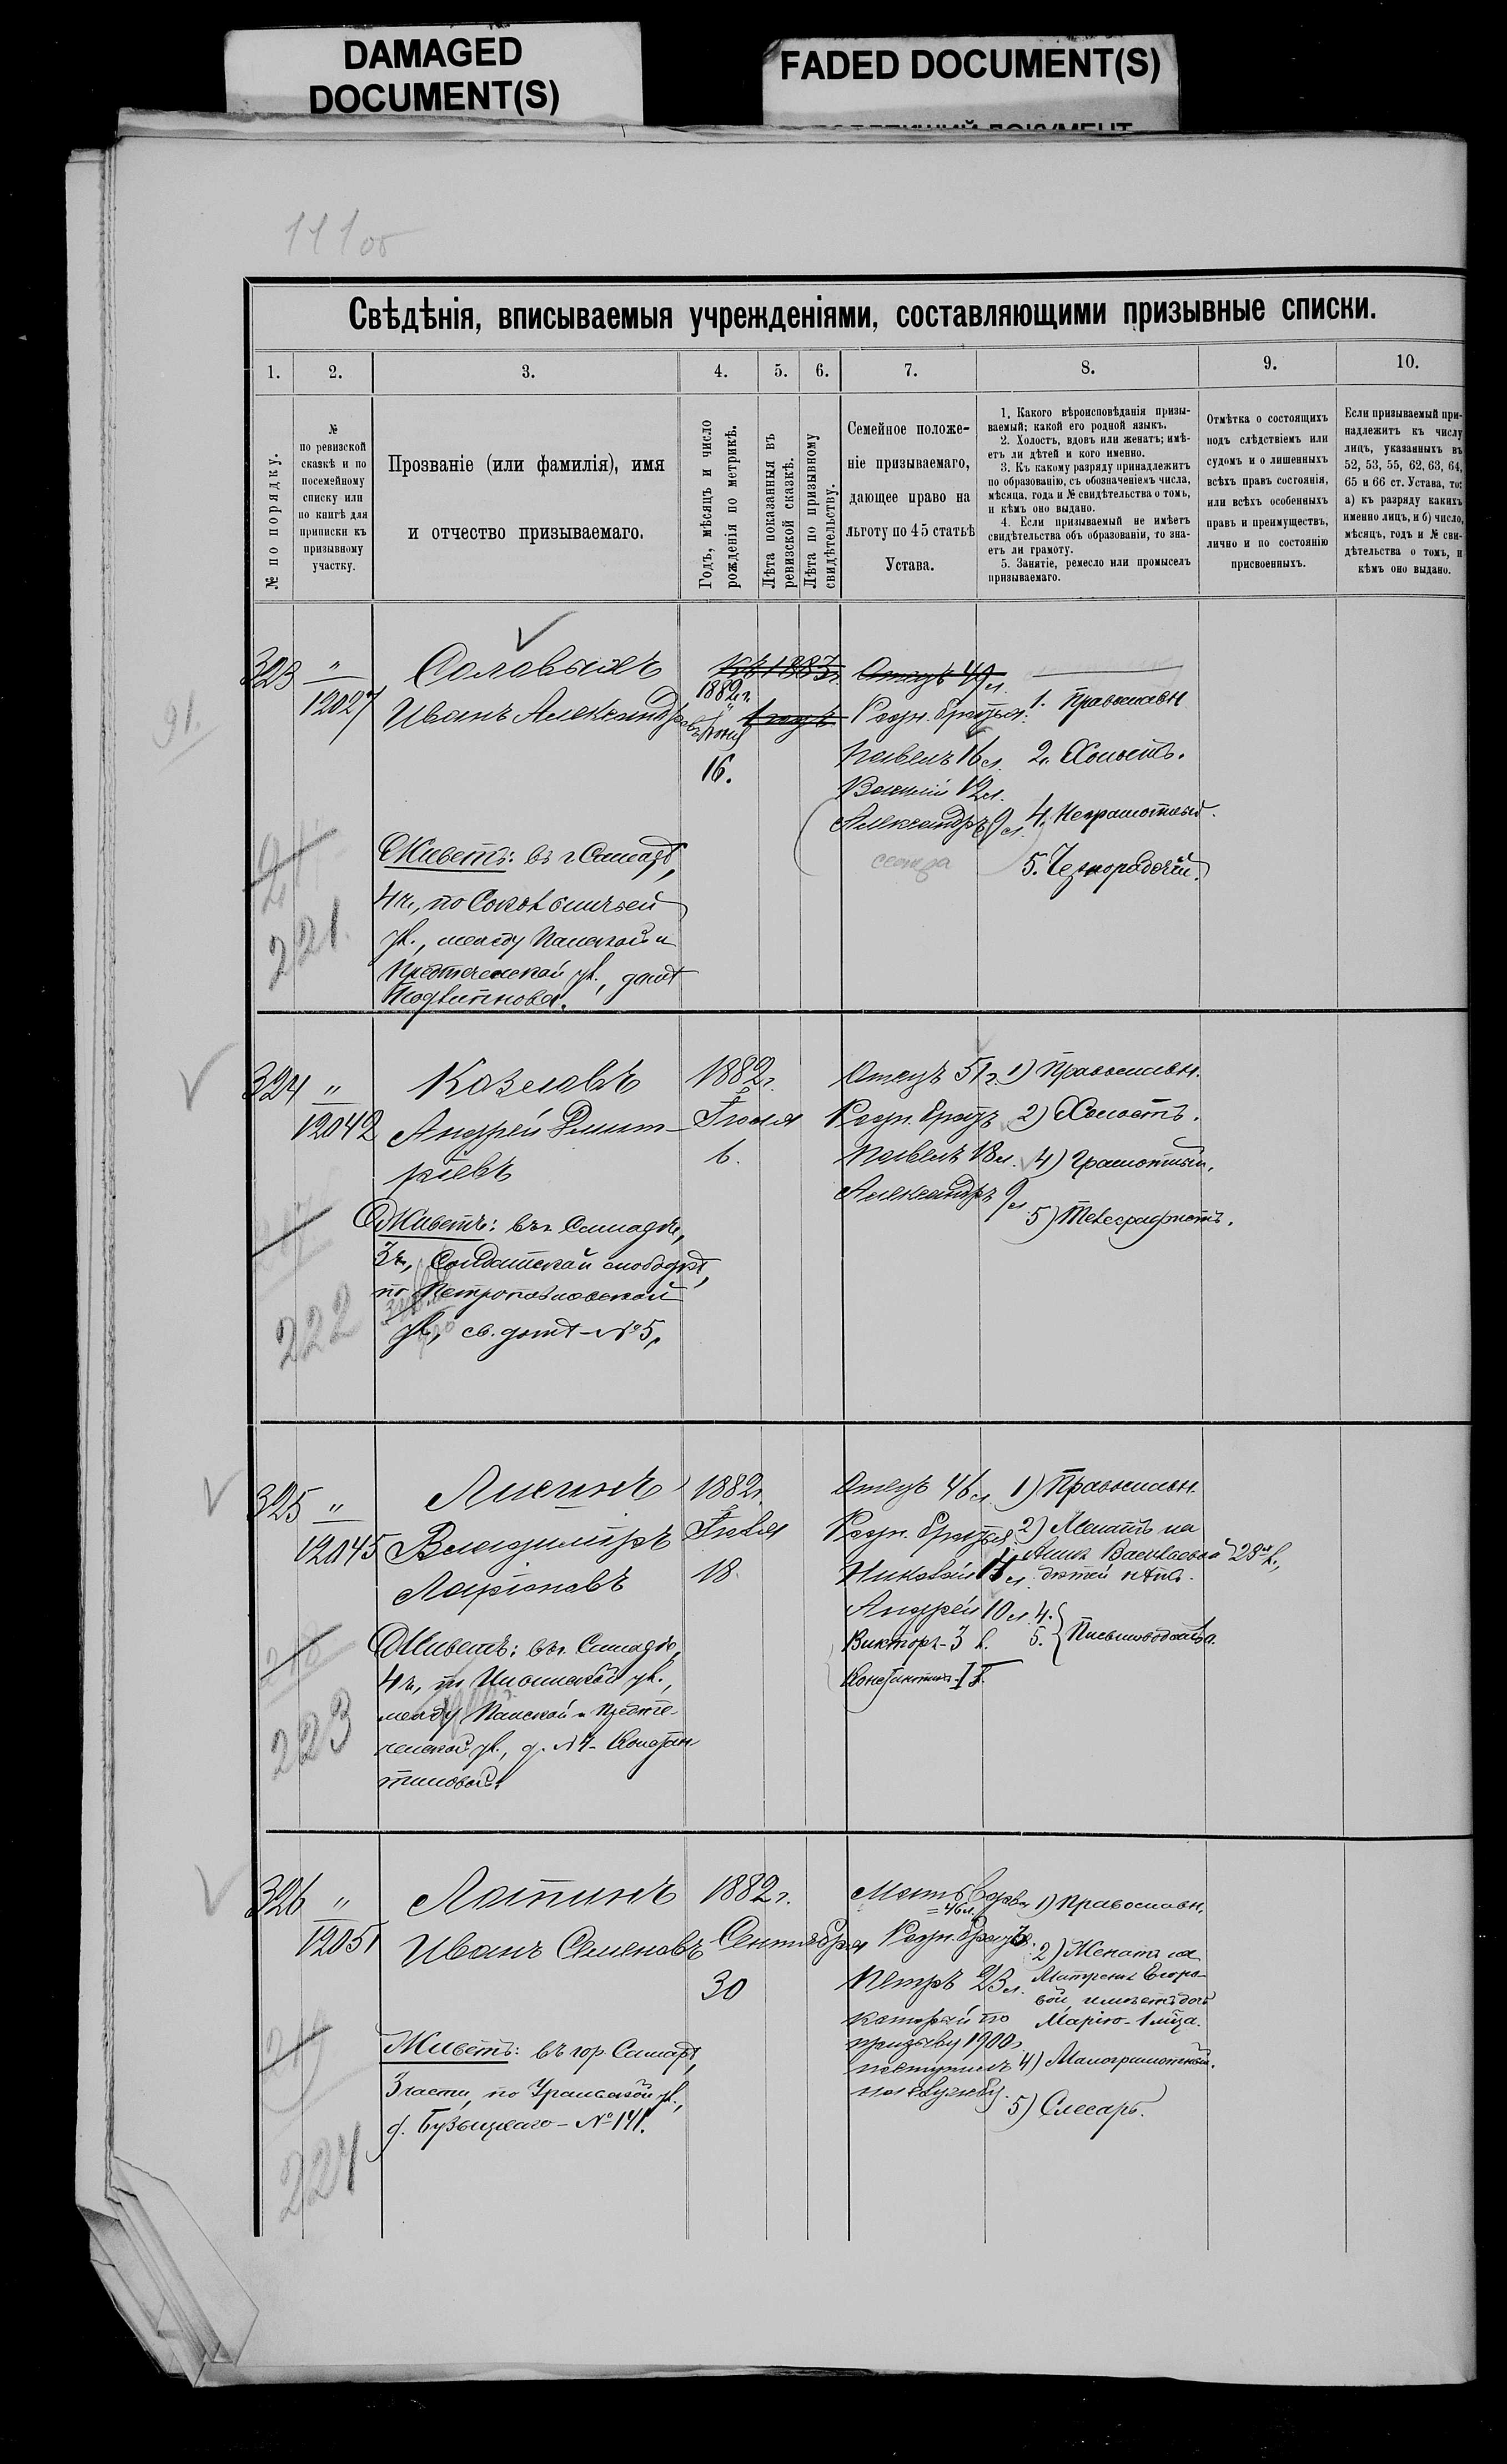 DAMAGED
DOCUMENT(S)
FADED DOCUMENT(S)
111об
Свѣдѣнія, вписываемыя учрежденіями, составляющими призывные списки.
1. 2. 3. 4. 5. 6. 7. 8. 9. 10.
№ по порядку.
№
по ревизской
сказкѣ и по
посемейному
списку или
по книгѣ для
приписки къ
призывному
участку.
Прозваніе (или фамилія), имя
и отчество призываемаго.
Годъ, мѣсяцъ и число
рожденія по метрикѣ.
Лѣта показанныя въ
ревизской сказкѣ.
Лѣта по призывному
свидѣтельству.
Семейное положе-
ніе призываемаго,
дающее право на
льготу по 45 статьѣ
Устава.
1. Какого вѣроисповѣданія призы-
ваемый; какой его родной языкъ.
2. Холостъ, вдовъ или женатъ; имѣ-
етъ ли дѣтей и кого именно.
3. Къ какому разряду принадлежитъ
по образованію, съ обозначеніемъ числа,
мѣсяца, года и № свидѣтельства о томъ,
и кѣмъ оно выдано.
4. Если призываемый не имѣетъ
свидѣтельства объ образованіи, то зна-
етъ ли грамоту.
5. Занятіе, ремесло или промыселъ
призываемаго.
Отмѣтка о состоящихъ
подъ слѣдствіемъ или
судомъ и о лишенныхъ
всѣхъ правъ состоянія,
или всѣхъ особенныхъ
правъ и преимуществъ,
лично и по состоянію
присвоенныхъ.
Если призываемый при-
надлежитъ къ числу
лицъ, указанныхъ въ
52, 53, 55, 62, 63, 64,
65 и 66 ст. Устава, то:
а) къ разряду какихъ
именно лицъ, и б) число,
мѣсяцъ, годъ и № сви-
дѣтельства о томъ, и
кѣмъ оно выдано.
91.
323 "
12027
Соловыхъ
Иванъ Александровъ
Къ 1883г.
1882г.
Іюня
1 годъ
16.
Отецъ 49 л.
Родн. братья:
Павелъ 16 л.
Василій 12 л.
Александръ 9 л.
сестра
1. Православн
2. Холостъ.
4. Неграмотный.
5. Чернорабочій.
Живетъ: въ г Самарѣ,
4 ч., по Сокольничьей
ул., между Панской и
Предтеченской ул., домъ
221.
324 "
12042
Козловъ
Андрей Дмит-
ріевъ
1882г.
Іюля
6.
Отецъ 51 г.
Родн. братъ
Павелъ 18 л.
Александръ 9 л.
1) Православн.
2) Холостъ.
4) Грамотный.
5) Телеграфистъ.
Живетъ: въ г. Самарѣ,
3 ч., Солдатской слободкѣ,
по Петропавловской
ул., св. домъ - № 5.
222
325 "
12045
Лисинъ
Владиміръ
Ларіоновъ
1882г.
Іюля
18.
Отецъ 46 л.
Родн. братья:
Николай
Андрей 10 л.
Викторъ - 3 л.
Константинъ - 1 г.
1) Православн.
2) Женатъ на
Анна Васильевна 23
дѣтей нѣтъ.
4.
5. Письмоводитель.
Живетъ: въ г. Самарѣ,
4 ч., по Ильинской ул.,
между Панской и Предте-
ченской ул., д. № 7 - Констан
тиновой.
223
326 "
12051
Лапинъ
Иванъ Семеновъ
1882г.
Сентября
30
Мать вдова
= 46 л.
Родн. братъ
Петръ 23 л.
который по
призыву 1900 г.
поступилъ
на службу.
1) Православн.
2) Женатъ на
Матрена Егоро-
вой, имѣетъ дочь
Марію - 1 мѣца.
4) Малограмотный.
5) Слесарь.
Живетъ: въ гор. Самарѣ,
3 части, по Уральской ул.,
д. Бузыцкаго - № 141.
224